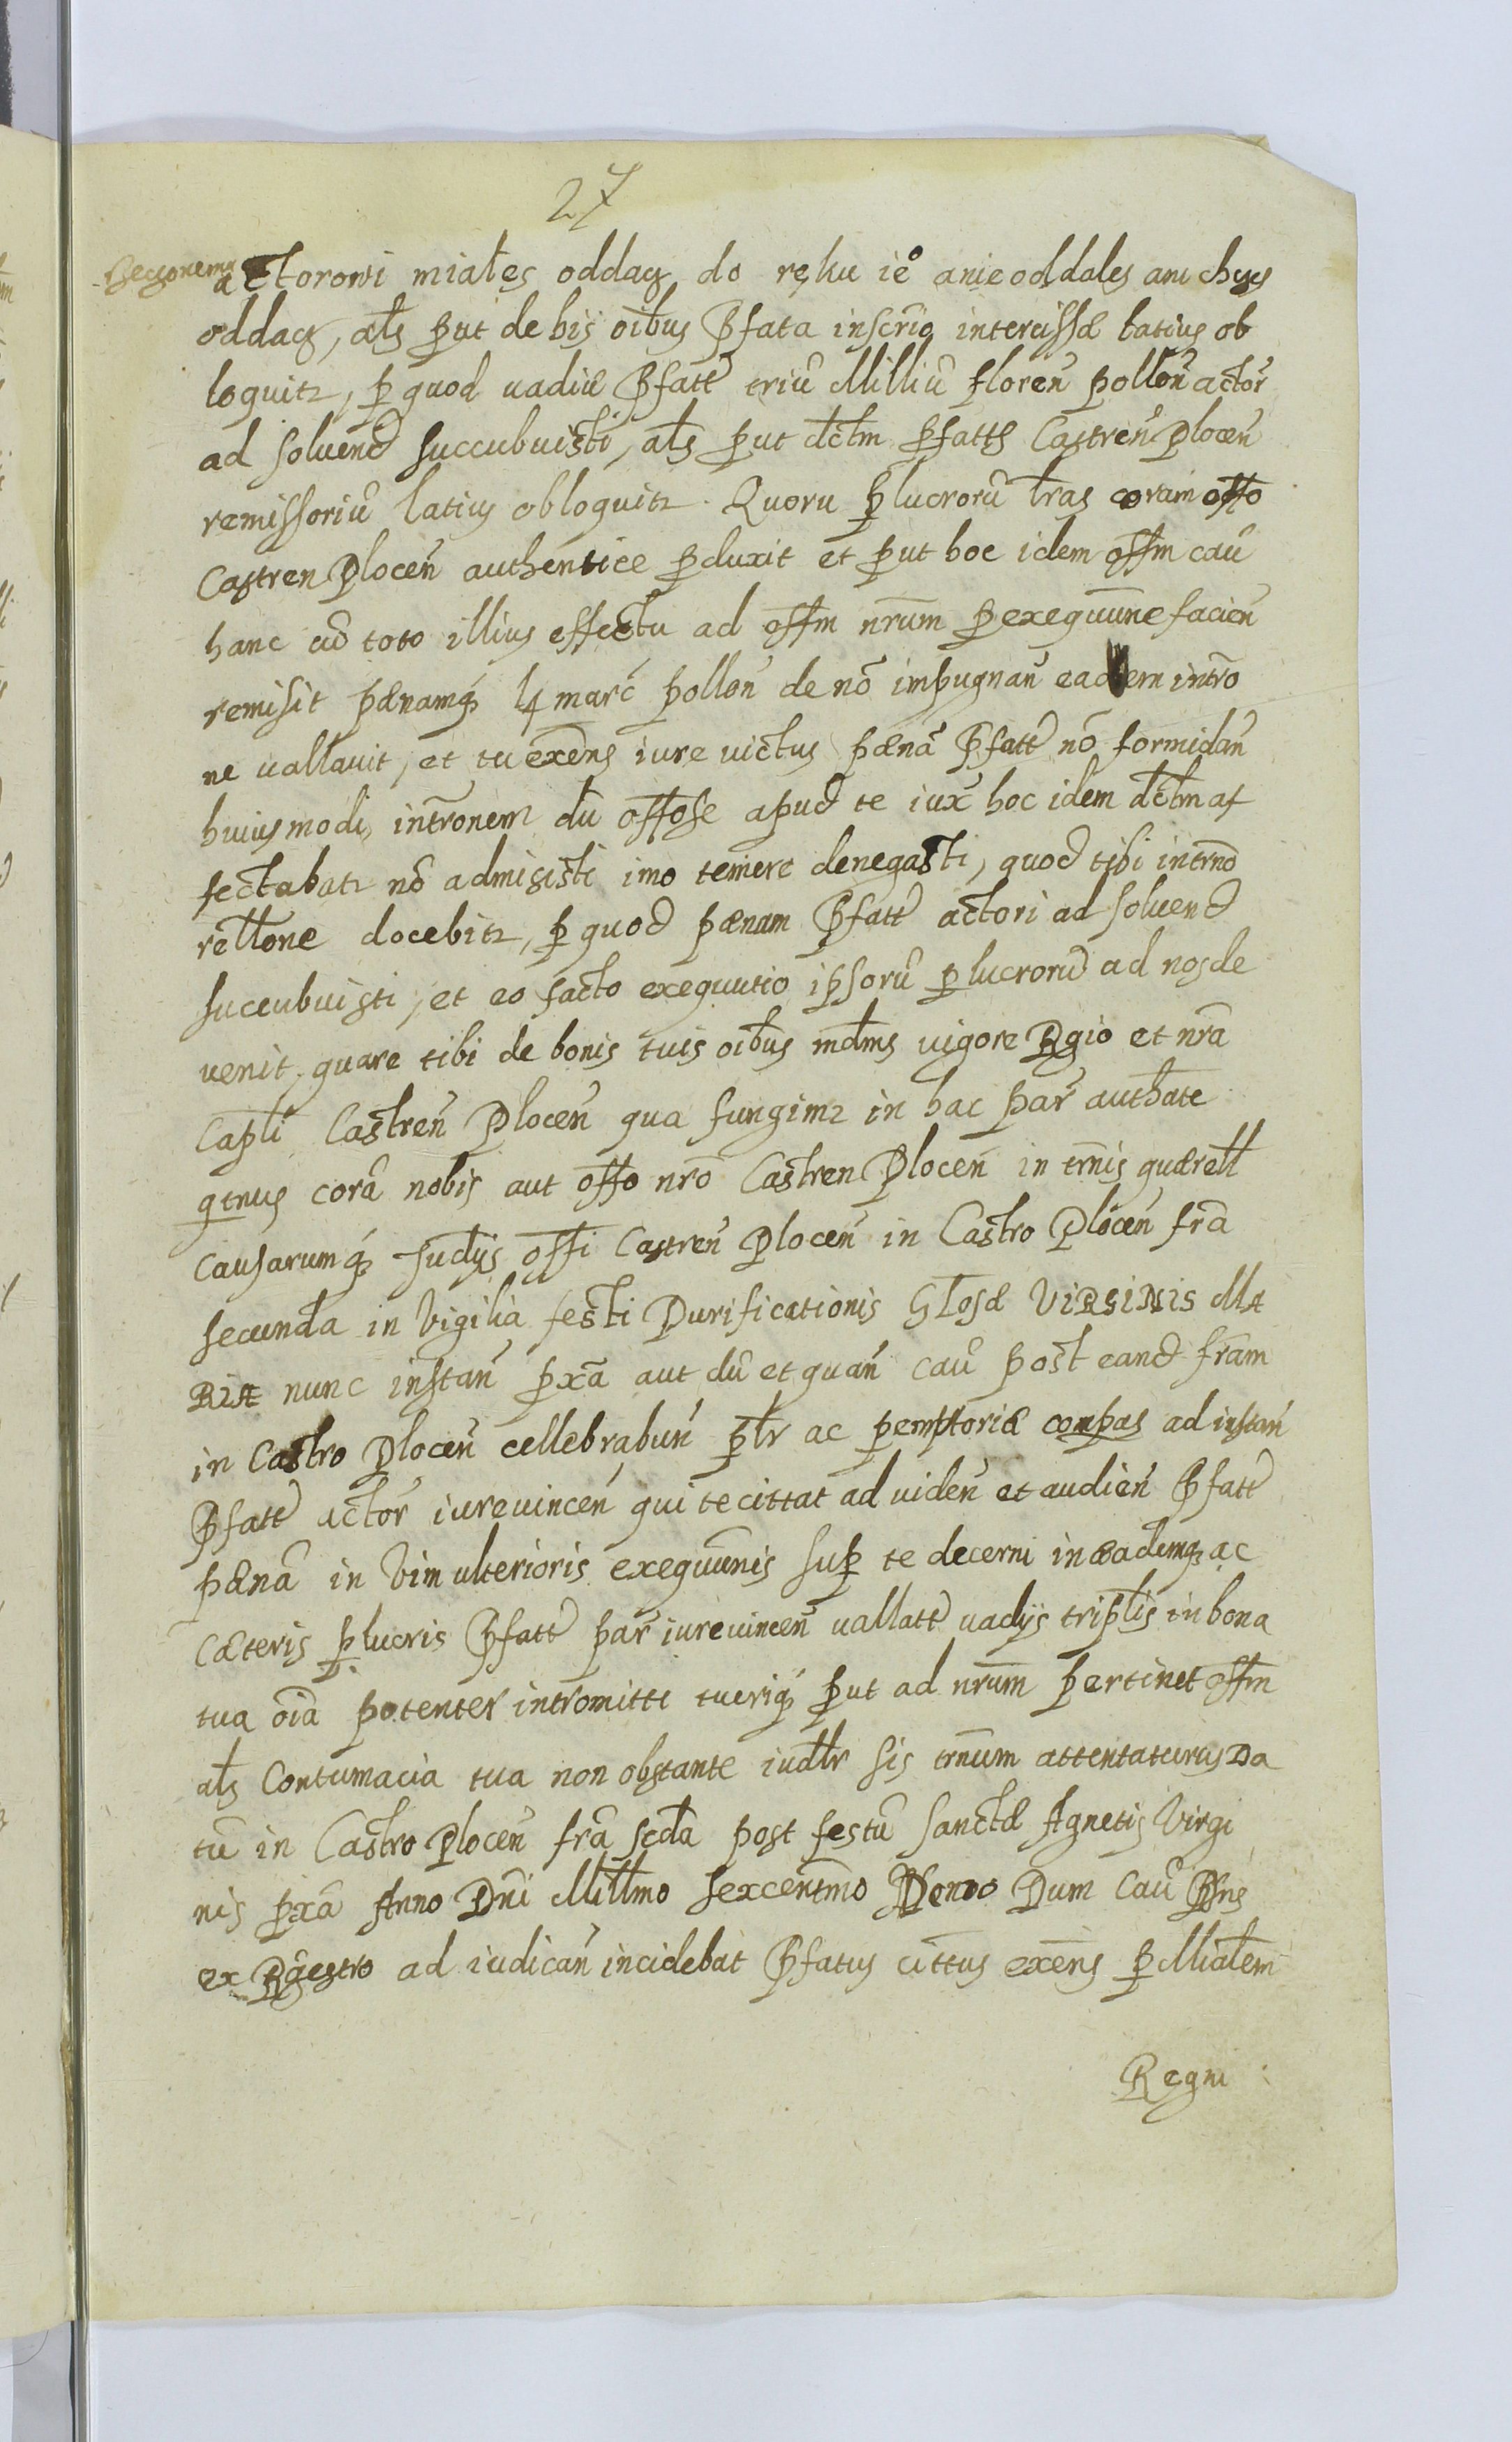 27
actorowi miałes oddacz do ręku ie° anie oddales ani chces
oddacz, als put de hijs oibus Pfata inscrio intercissæ latius ob
loquitr, p quod vadiū Pfatt triū Milliū floreñ polloñ actor
ad solvend succubuisti, als put dctm Pfatts Castreñ Ploceñ
remissoriū latius obloquitr. Quoru plucrorū lras coram offo
Castren Ploceñ authentice pduxit et put hoc idem offm caū
hanc cū toto illius effectu ad offm nrum p exequūne facień
remisit pænamq 14 marc polloñ de nō impugnañ eadem intro
ne vallavit, et tu exens iure victus pænā Pfatt nō formidañ
huiusmodi intronem dū offose apud te iux hoc idem dctm af
fectabatr nō admisisti imo temere denegasti, quod tibi intrnō
rellone docebitr, p quod pænam Pfatt actori ad solvend
succubuisti, et eo facto exequutio ipsorū plucrorū ad nos de
venit, quare tibi de bonis tuis oibus mdms vigore Rgio et nra
Capli Castreñ Ploceñ qua fungimr in hac par authate
qtnus corā nobis aut offo nrō Castren Ploceñ in trnis quærell
causarumq Judijs offi Castreñ Ploceñ in Castro Ploceñ fra
secunda in Vigilia festi Purificationis Glosæ VIRGINIS MA
RIÆ nunc instañ pxa aut dū et quañ caū post eand fram
in Castro Ploceñ cellebrabuñ plr ac pemptoriæ conpas ad instañ
Pfatt actor iurevinceñ qui te cittat ad videñ et audień Pfatt
pænā in Vim ulterioris exequūnis sup te decerni in eademq ac
cæteris plucris Pfatt par iurevinceñ vallatt vadijs triplis in bona
tua oia potenter intromitti tueriq put ad nrum pertinet offm
als Contumacia tua non obstante iudlr sis trnum attentaturus Da
tū in Castro Ploceñ fra scda post festū Sanctæ Agnetis Virgi
nis pxa Anno Dni Millmo Sexcentmo Dum Caū Pns
ex Rgestro ad iudicañ incidebat Pfatus cittus exens p Mialem
Regni